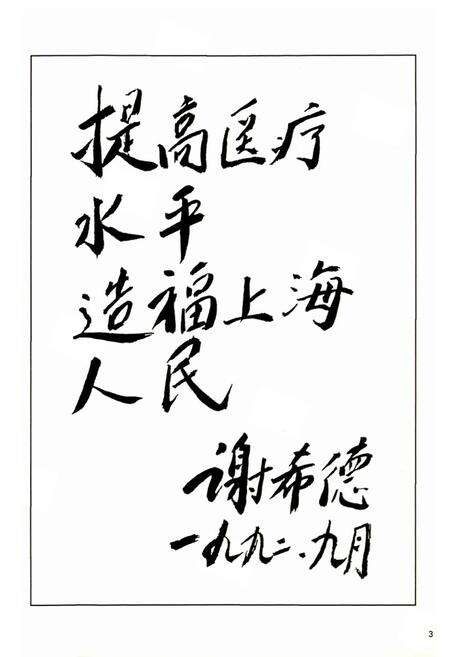 提高医疗
水平
造福上海
人民
谢希德
一九九二、九月
3